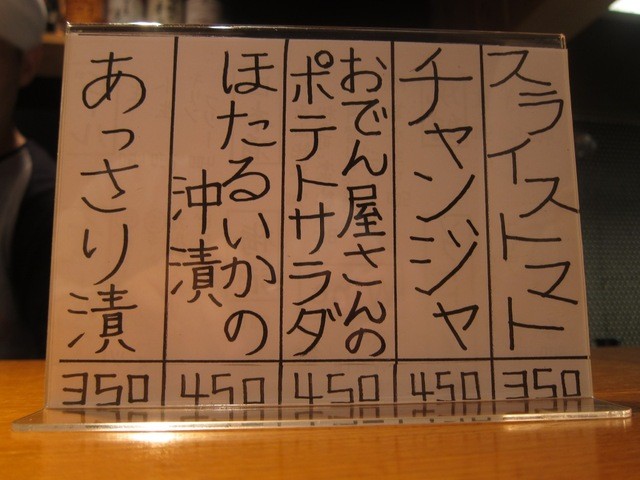 スライストマト
350
チャンジャ
450
おでん屋さんの
ポテトサラダ
450
ほたるいかの
沖漬
450
あっさり漬
350